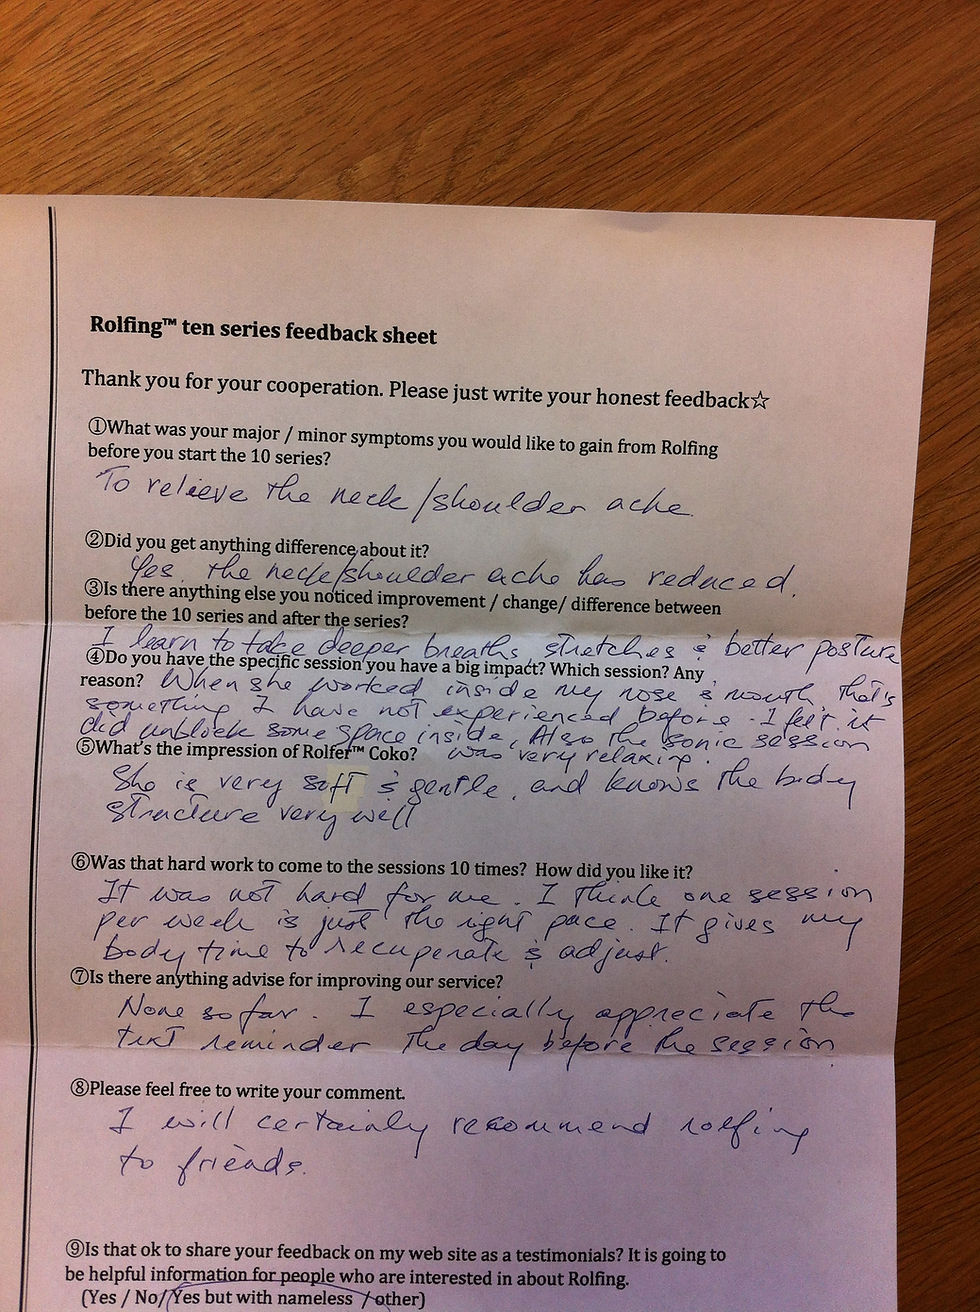 Rolfing™ ten series feedback sheet
Thank you for your cooperation. Please just write your honest feedback☆
①What was your major / minor symptoms you would like to gain from Rolfing
before you start the 10 series?
To relieve the neck/shoulder ache.
②Did you get anything difference about it?
Yes. the neck/shoulder ache has reduced.
③Is there anything else you noticed improvement / change/ difference between
before the 10 series and after the series?
I learn to take deeper breaths stretches & better posture
④Do you have the specific session you have a big impact? Which session? Any
reason? When she worked inside my nose & mouth, that's
something I have not experienced before. I felt it
did unblock some space inside, Also the sonic session
was very relaxing.
⑤What's the impression of Rolfer™ Coko?
She is very soft & gentle, and knows the body
structure very well
⑥Was that hard work to come to the sessions 10 times? How did you like it?
It was not hard for me. I think one session
per week is just the right pace. It gives my
body time to recuperate & adjust.
⑦Is there anything advise for improving our service?
None so far. I especially appreciate the
text reminder the day before the session.
⑧Please feel free to write your comment.
I will certainly recommend rolfing
to friends.
⑨Is that ok to share your feedback on my web site as a testimonials? It is going to
be helpful information for people who are interested in about Rolfing.
(Yes / No/ Yes but with nameless / other)